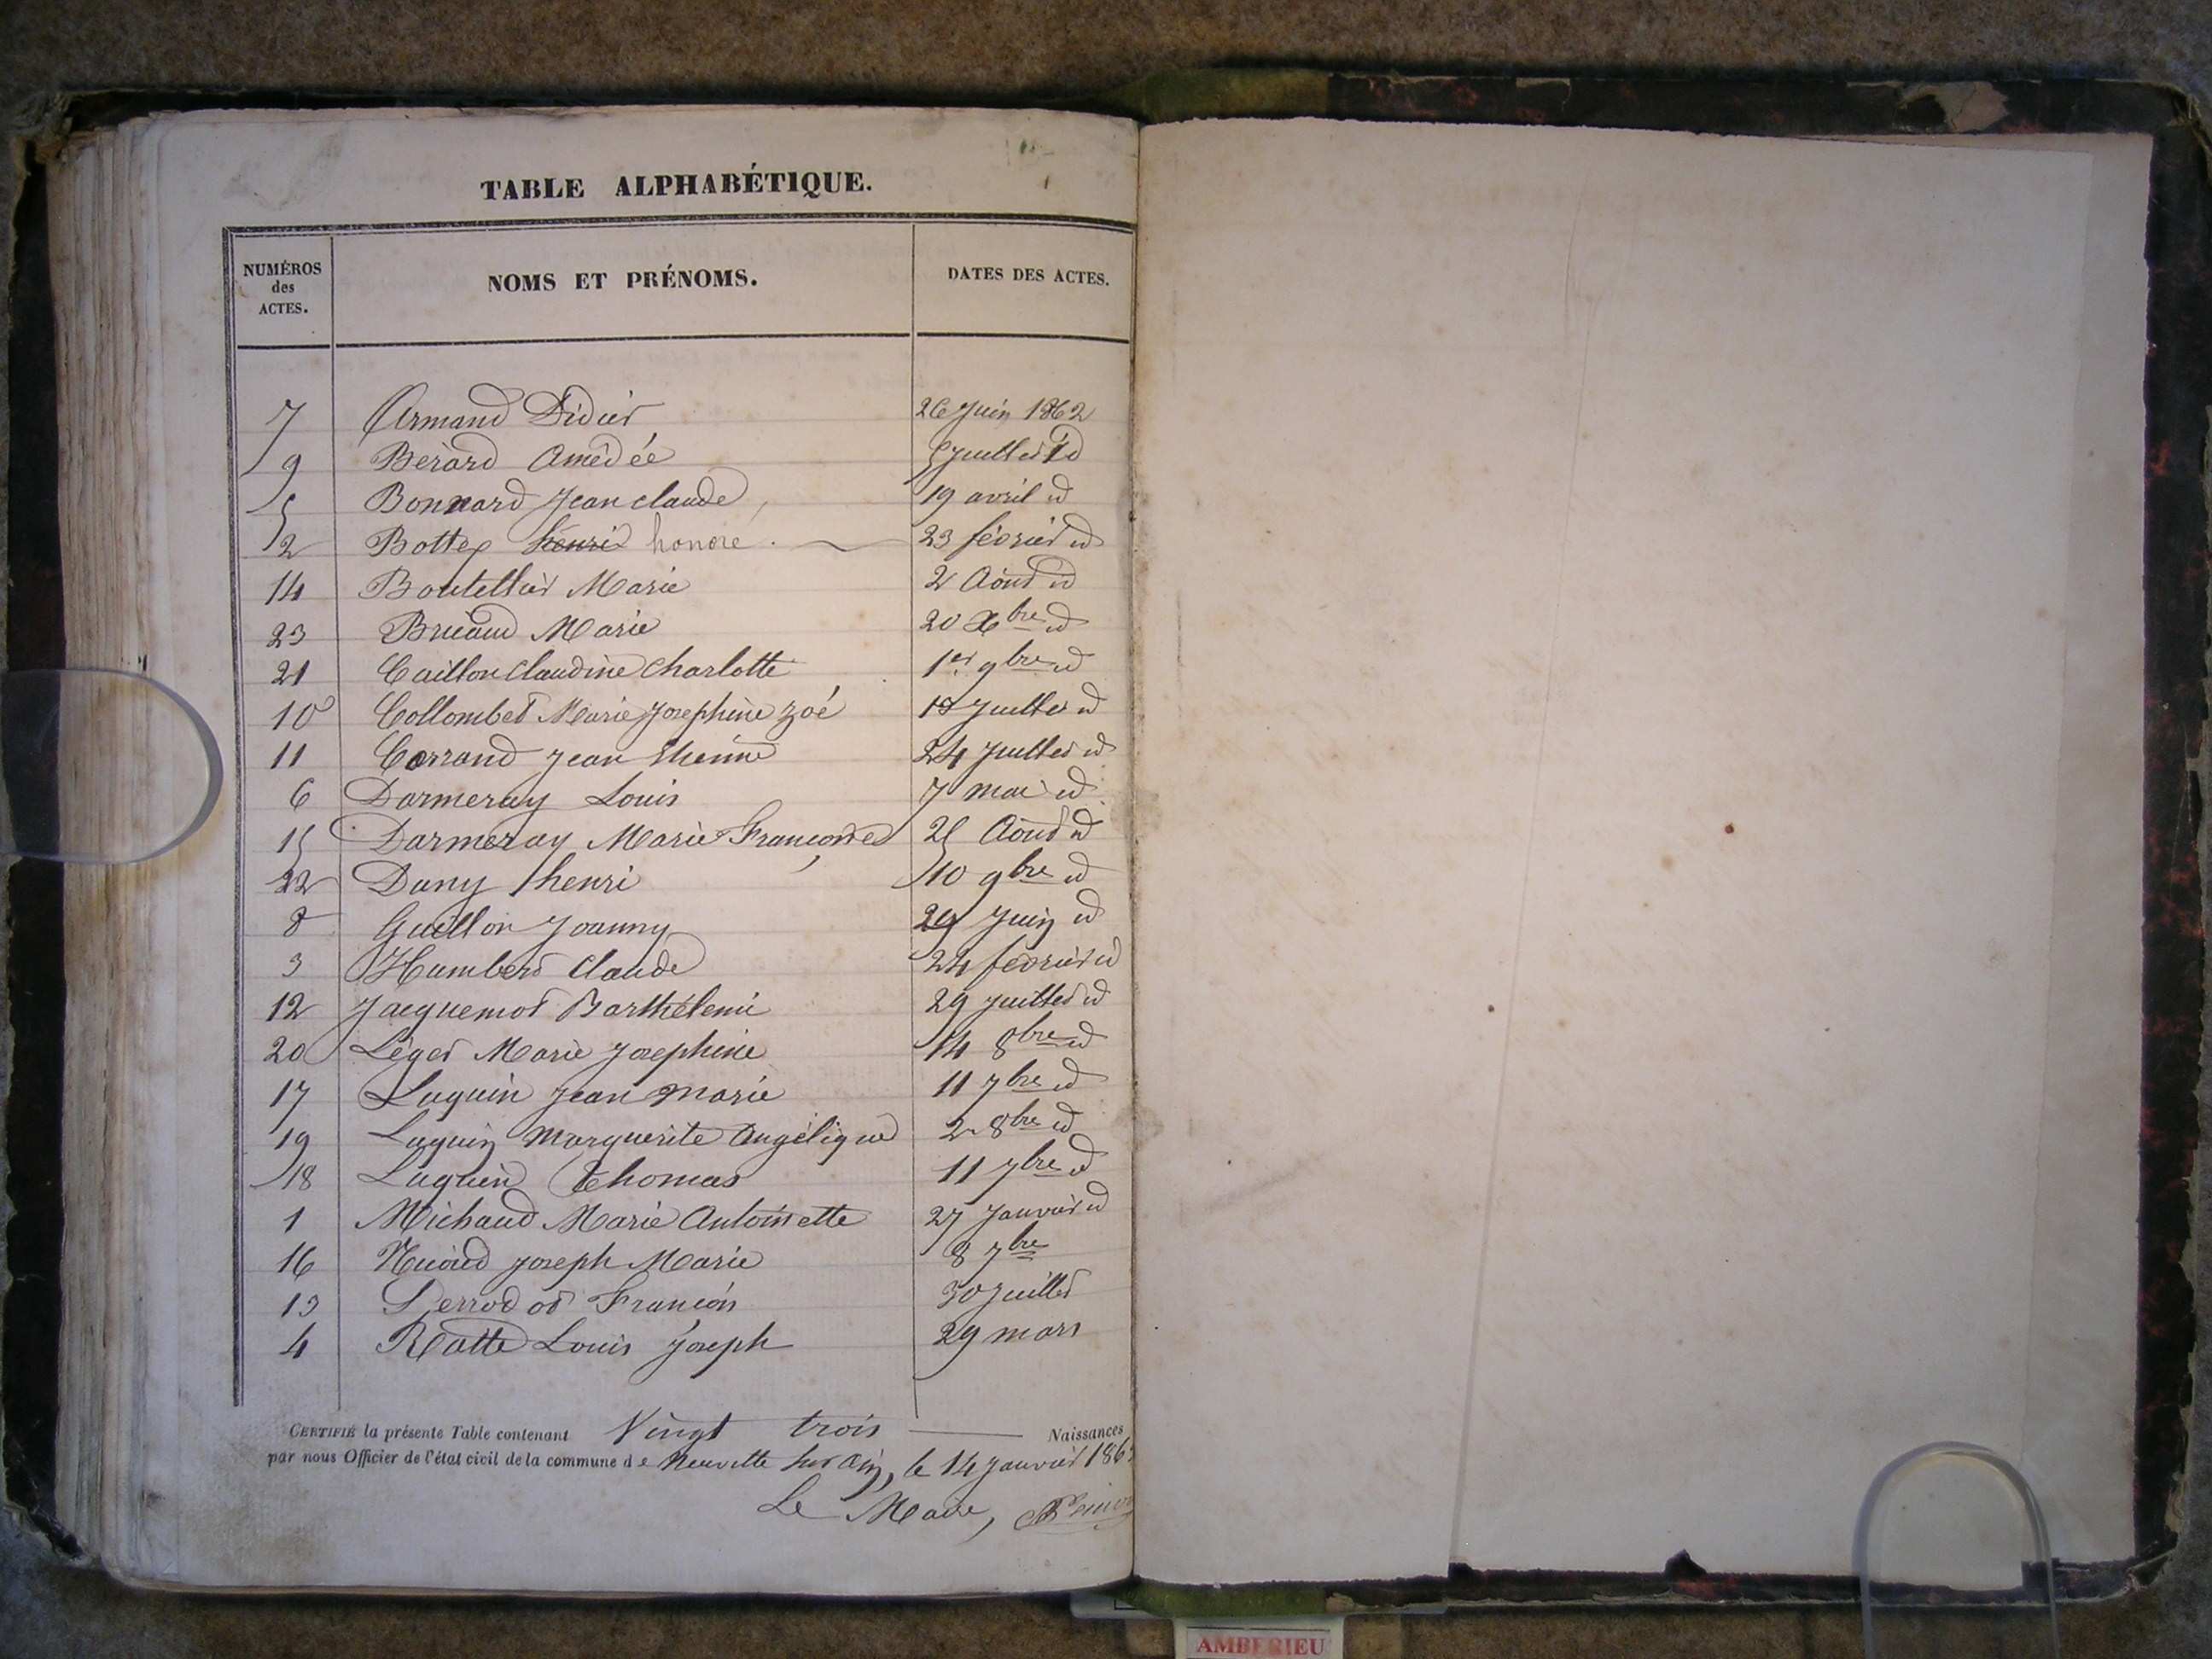 TABLE ALPHABÉTIQUE.
NUMÉROS des ACTES. NOMS ET PRÉNOMS. DATES DES ACTES.
7 Armand Didier 26 Juin 1862
9 Berard Amédée 5 Juillet id
5 Bonnard Jean Claude 19 avril id
2 Bottex henri honore 23 février id
14 Boutellier Marie 2 Août id
23 Bruaud Marie 20 Xbre id
21 Caillon Claudine Charlotte 1er 9bre id
10 Collombet Marie Josephine Zoé Juillet id
11 Corrand Jean Etienne 24 Juillet id
6 Darmeray Louis 7 mai id
15 Darmeray Marie Françoise 25 Août id
22 Dany henri 10 9bre id
8 Guillon Joanny 29 Juin id
3 Humbert Claude 24 février id
12 Jacquemot Barthélemi 29 Juillet id
20 Léger Marie Josephine 14 8bre id
17 Luquin Jean Marie 11 7bre id
19 Luquin Marguerite Angélique 2 8bre id
18 Luquin Thomas 11 7bre id
1 Michaud Marie Antoinette 27 Janvier id
16 Joseph Marie 8 7bre
13 Perrodot François 30 Juillet
4 Ratte Louis Joseph 29 mars
CERTIFIÉ la présente Table contenant Vingt trois Naissances
par nous Officier de l'état civil de la commune de Neuville sur Ain, le 14 Janvier 1863
Le Maire,
AMBERIEU